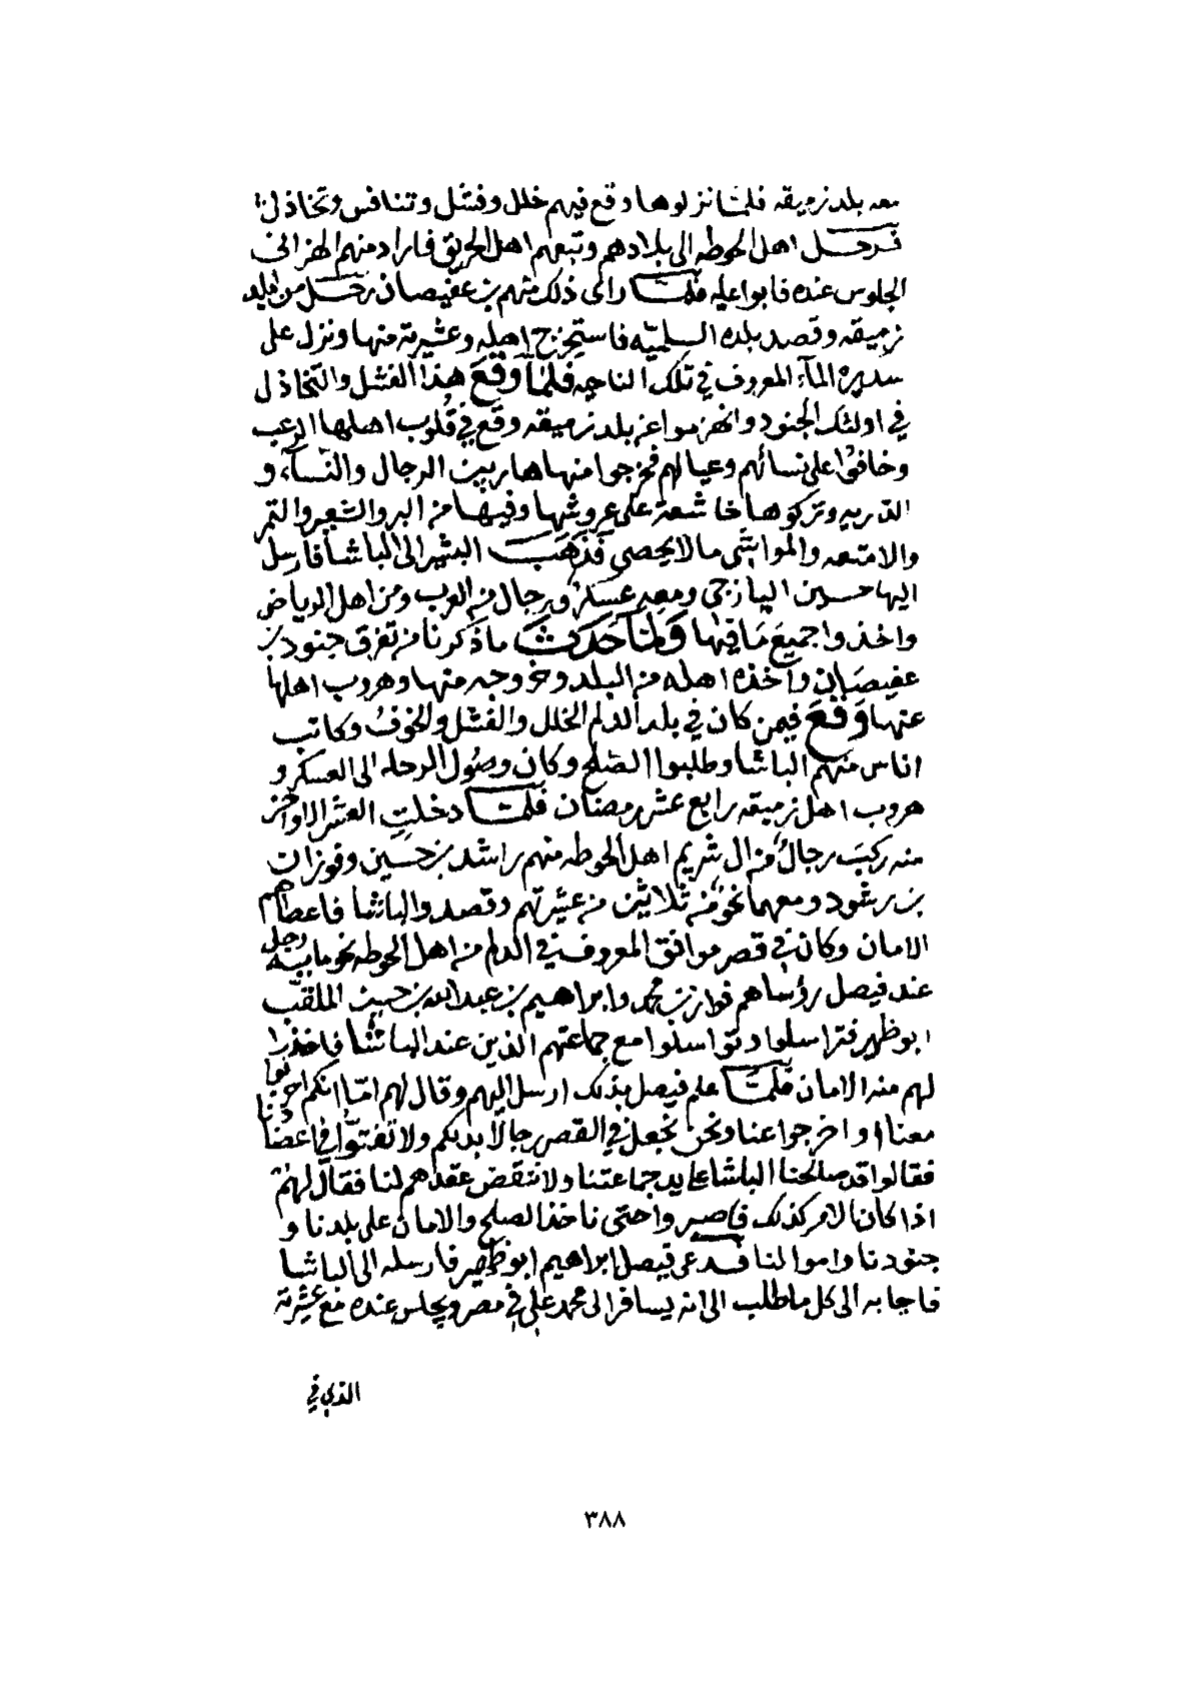 معه بلد زميقه فلما نزلوها وقع فيهم خلل وفشل وتنافس وتخاذل
فرحل اهل الحوطه الى بلادهم وتبعهم اهل الحريق فاراد منهم الهزاني
الجلوس عنده فابوا عليه فلما راى ذلك منهم بن عفيصان رحل من بلد
زميقه وقصد بلده السلميّه فاستخرج اهله وعشيرته منها ونزل على
سديره المآء المعروف في تلك الناحيه فلمّا وقع هذا الفشل والتّخاذل
في اولئك الجنود وانهزموا عن بلد زميقه وقع في قلوب اهلها الرعب
وخافوا على نسائهم وعيالهم فخرجوا منها هاربين الرجال والنّسآء و
الذريه وتركوها خاشعة على عروشها وفيها من البر والشعير والتمر
والامتعه والمواشي ما لا يحصى فذهب البشير الى الباشا فارسل
اليها حسين اليازجي ومعه عسكر ورجال من العرب ومن اهل الرياض
واخذوا جميع ما فيها ولمّا حدث ما ذكرنا من تفرق جنود بن
عفيصان وآخذه اهله من البلد وخروجه منها وهروب اهلها
عنها وقع فيمن كان في بلد الدلم الخلل والفشل والخوف وكاتب
اناس منهم الباشا وطلبوا الصّلح وكان وصول الرحله الى العسكر و
هروب اهل زميقه رابع عشر رمضان فلما دخلت العشر الاواخر
منه ركب رجال من ال شريم اهل الحوطه منهم راشد بن حسين وفوزان
بن رشود ومعهما نحو من ثلاثين من عشيرتهم وقصدوا الباشا فاعطاهم
الامان وكان في قصر موافق المعروف في الدلم من اهل الحوطه نحو مايه رجل
عند فيصل رؤساهم فواز بن محمد وابراهيم بن عبدالله بن حسين الملقب
ابو ظهير فتراسلوا وتواسلوا مع جماعتهم الذين عند الباشا فاخذوا
لهم منه الامان فلمّا علم فيصل بذلك ارسل اليهم وقال لهم امّا انكم احربوا
معنا او اخرجوا عنا ونحن نجعل في القصر رجالا بدلكم ولا تفتوا في اعضادنا
فقالوا قد صالحنا الباشا على يد جماعتنا ولا ننقض عقدهم لنا فقال لهم
اذا كان الامر كذلك فاصبروا حتى ناخذ الصلح والامان على بلدنا و
جنودنا واموالنا فدعى فيصل ابراهيم ابو ظهير فارسله الى الباشا
فاجابه الى كل ما طلب الى انه يسافر الى محمد علي في مصر ويجلس عنده مع عشيرته
الذي في
٣٨٨